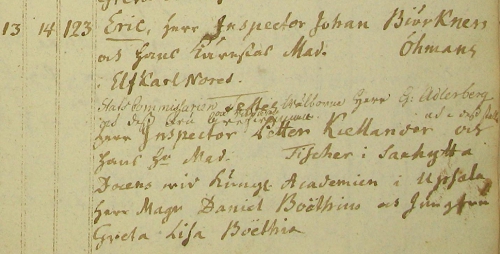 13 14 123 Eric, Herr Inspector Johan Biörkners
och Hans Kärestas Mad. Öhmans
i Elfkarl Nored.
Stats Commissarien Herr G: Adlerberg
Herr Inspector Petter Kiellander och
Hans Fru Mad. Tischer i Saxhytta
Docens wid Kungl. Academien i Upsala
Herr Magr Daniel Boëthius och Jungfru
Greta Lisa Boëthia